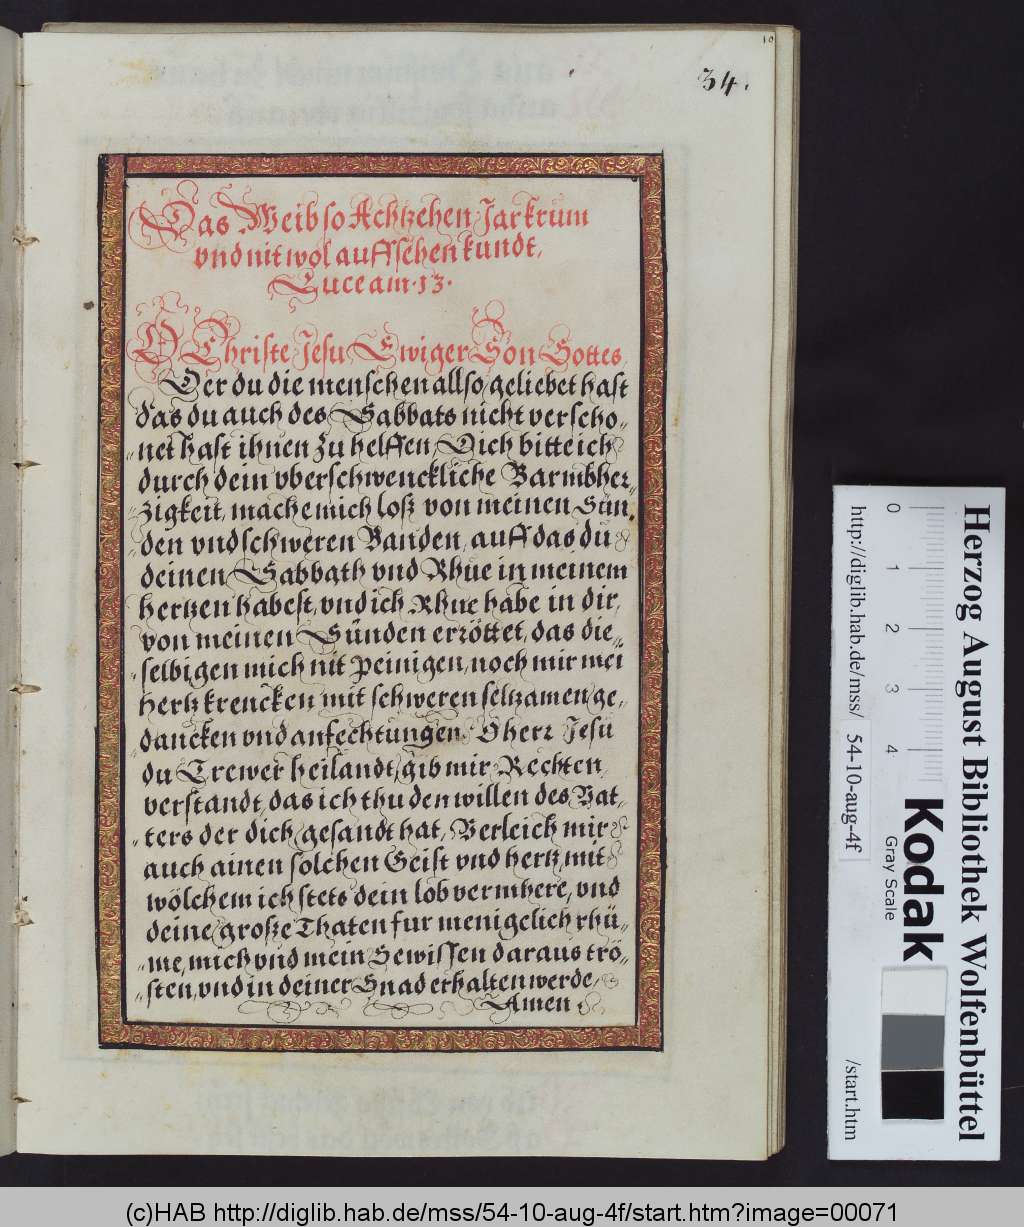 10
34.
Das Weib so Achtzehen Jar krum
vnd nit wol auffsehen kundt,
Luce am 13.
O Christe Jesu Ewiger Son Gottes
Der du die menschen allso geliebet hast
das du auch des Sabbats nicht verscho„
„net hast ihnen zu helffen, Dich bitte ich
durch dein vberschwenckliche Barmbher„
„zigkeit, mache mich loß von meinen Sün„
„den vnd schweren Banden, auff das du
deinen Sabbath vnd Rhue in meinem
hertzen habest, vnd ich Rhue habe in dir,
von meinen Sünden erröttet, das die„
„selbigen mich nit peinigen, noch mir mei
hertz krencken mit schweren seltzamen ge„
„dancken vnd anfechtungen. O herr Jesu
du Trewer heilandt, gib mir Rechten
verstandt, das ich thu den willen des Vat„
„ters der dich gesandt hat, Verleich mir
auch ainen solchen Geist vnd hertz, mit
wölchem ich stets dein lob vermhere, vnd
deine große Thaten fur menigelich rhü„
„me, mich vnd mein Gewissen daraus trö„
„sten, vnd in deiner Gnad erhalten werde,
Amen
Herzog August Bibliothek Wolfenbüttel
http://diglib.hab.de/mss/ 54-10-aug-4f /start.htm
0 1 2 3 4
Kodak
Gray Scale
(c)HAB http://diglib.hab.de/mss/54-10-aug-4f/start.htm?image=00071